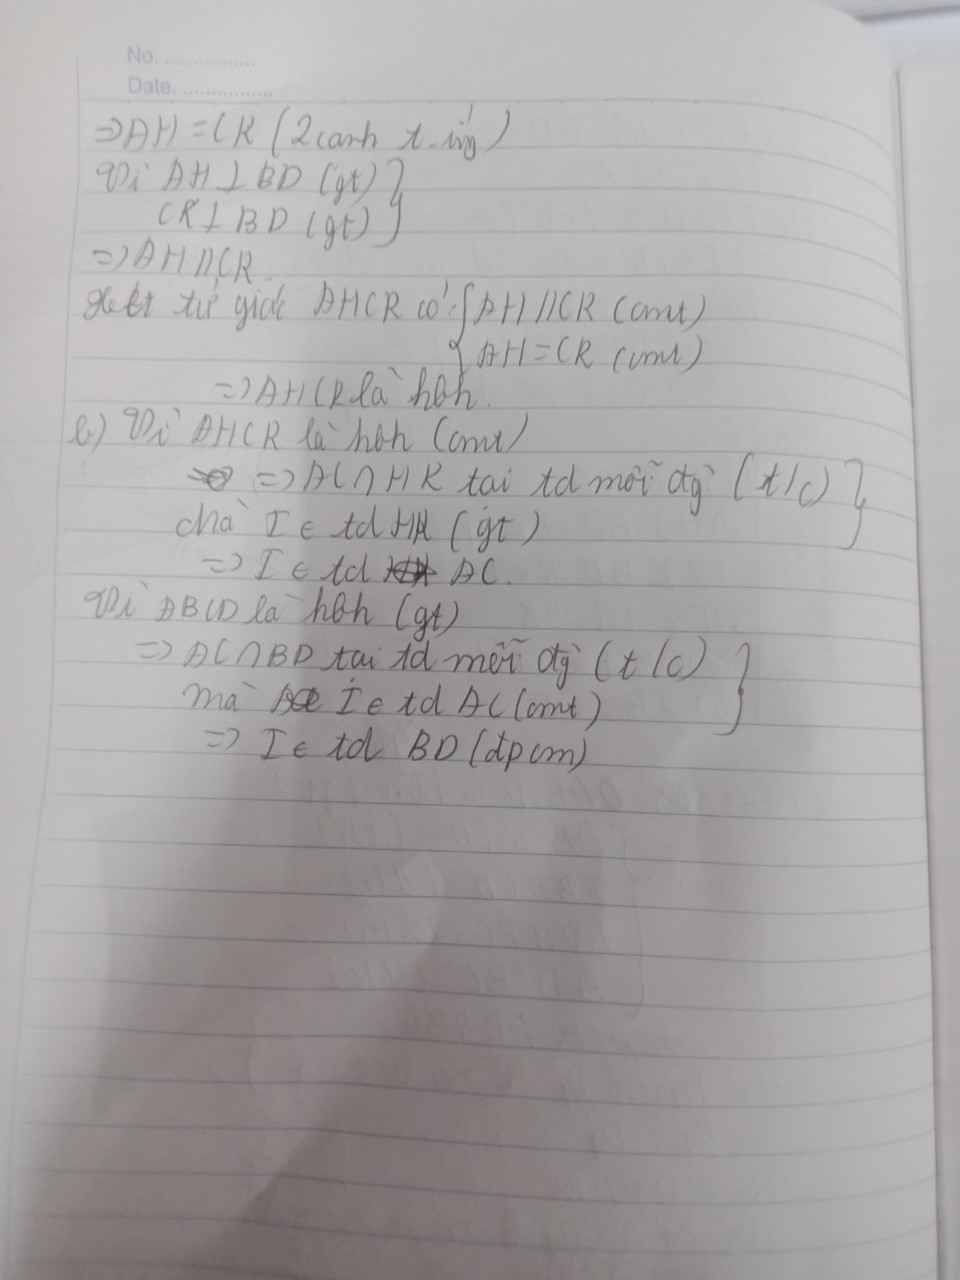 No. ................
Date. ................
=> AH = CK (2 cạnh t.ứng)
Vì AH ⊥ BD (gt)
CK ⊥ BD (gt) }
=> AH // CK.
Xét tứ giác AHCK có { AH // CK (cmt)
AH = CK (cmt)
=> AHCK là hbh.
b) Vì AHCK là hbh (cmt)
=> AC ∩ HK tại td mỗi đg` (t/c) }
mà I ∈ td HK (gt)
=> I ∈ td AC.
Vì ABCD là hbh (gt)
=> AC ∩ BD tại td mỗi đg` (t/c) }
mà I ∈ td AC (cmt)
=> I ∈ td BD (đpcm)